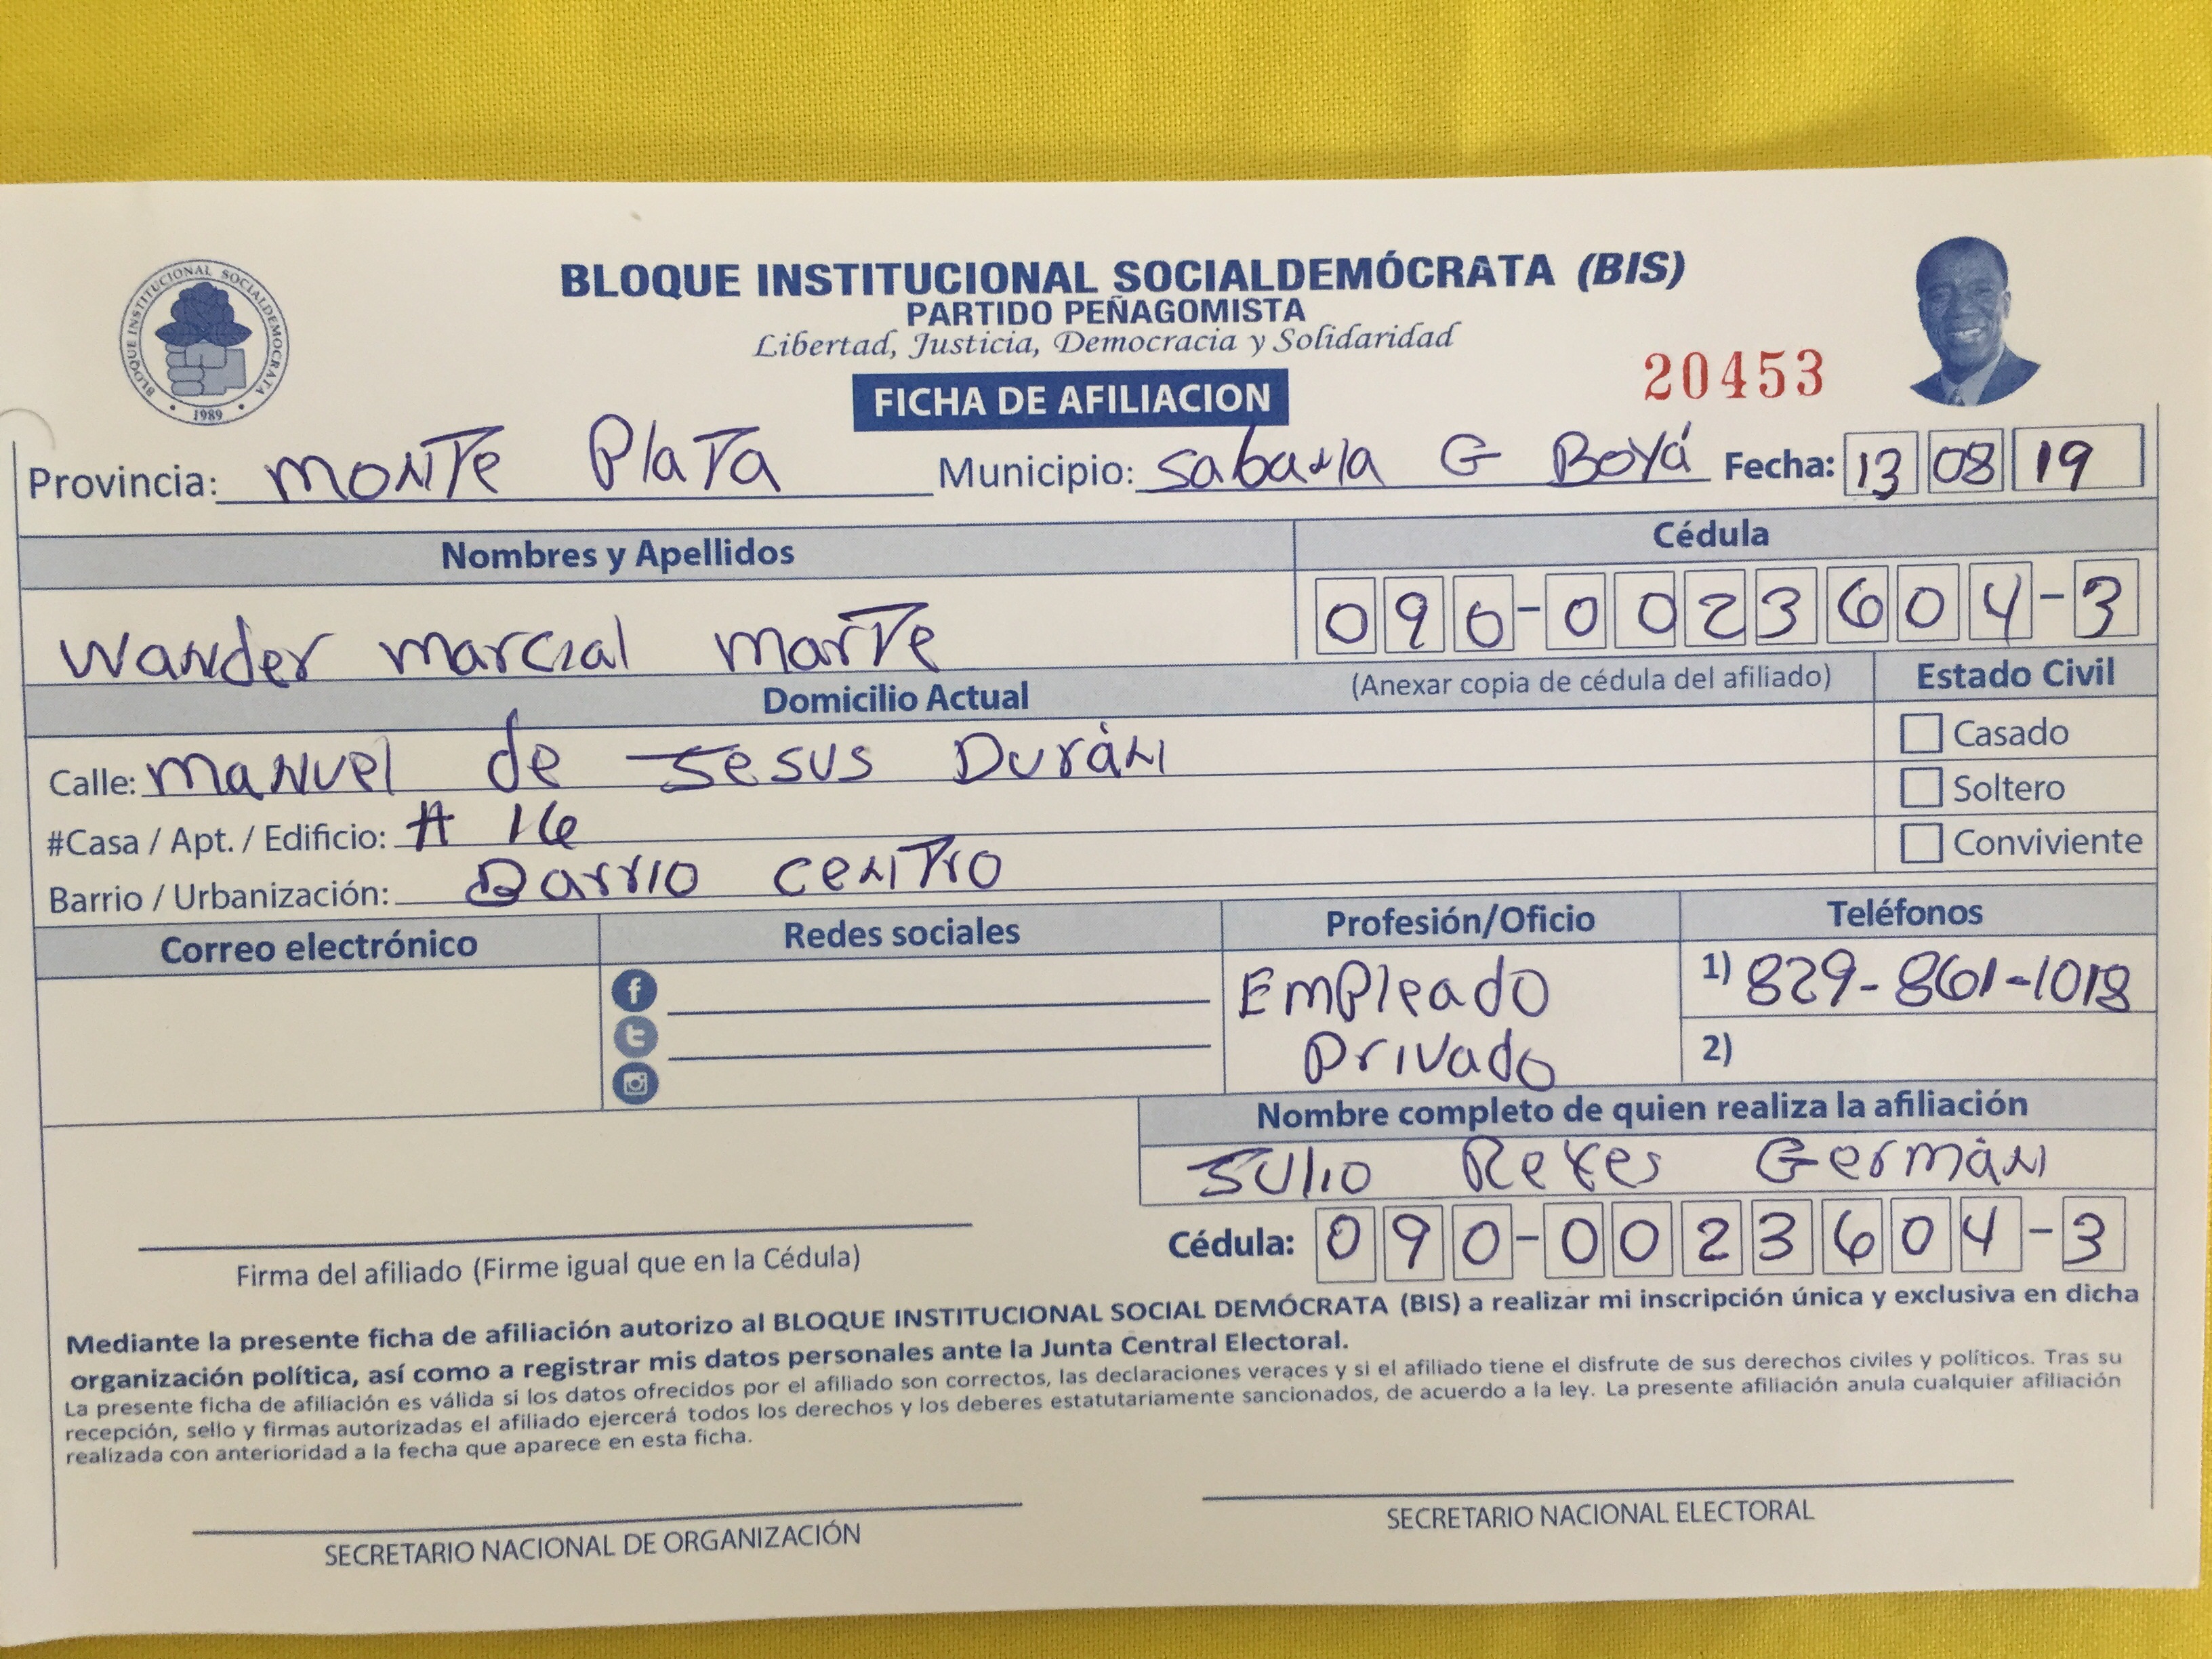 BLOQUE INSTITUCIONAL SOCIALDEMÓCRATA (BIS)
PARTIDO PEÑAGOMISTA
Libertad, Justicia, Democracia y Solidaridad
BLOQUE INSTITUCIONAL SOCIALDEMOCRATA
• 1989 •
20453
FICHA DE AFILIACION
Provincia: MONTE PlaTa Municipio: Sabana G Boyá Fecha: 13 08 19
Nombres y Apellidos Cédula
Wander marcial marTe 090-0023604-3
Domicilio Actual (Anexar copia de cédula del afiliado) Estado Civil
Calle: manuel de Jesus Durán Casado
#Casa / Apt. / Edificio: # 16 Soltero
Barrio / Urbanización: Barrio cenTro Conviviente
Correo electrónico Redes sociales Profesión/Oficio Teléfonos
Empleado 1) 829-861-1018
Privado 2)
Nombre completo de quien realiza la afiliación
Julio Reyes Germán
Cédula: 090-0023604-3
Firma del afiliado (Firme igual que en la Cédula)
Mediante la presente ficha de afiliación autorizo al BLOQUE INSTITUCIONAL SOCIAL DEMÓCRATA (BIS) a realizar mi inscripción única y exclusiva en dicha
organización política, así como a registrar mis datos personales ante la Junta Central Electoral.
La presente ficha de afiliación es válida si los datos ofrecidos por el afiliado son correctos, las declaraciones veraces y si el afiliado tiene el disfrute de sus derechos civiles y políticos. Tras su
recepción, sello y firmas autorizadas el afiliado ejercerá todos los derechos y los deberes estatutariamente sancionados, de acuerdo a la ley. La presente afiliación anula cualquier afiliación
realizada con anterioridad a la fecha que aparece en esta ficha.
SECRETARIO NACIONAL DE ORGANIZACIÓN SECRETARIO NACIONAL ELECTORAL